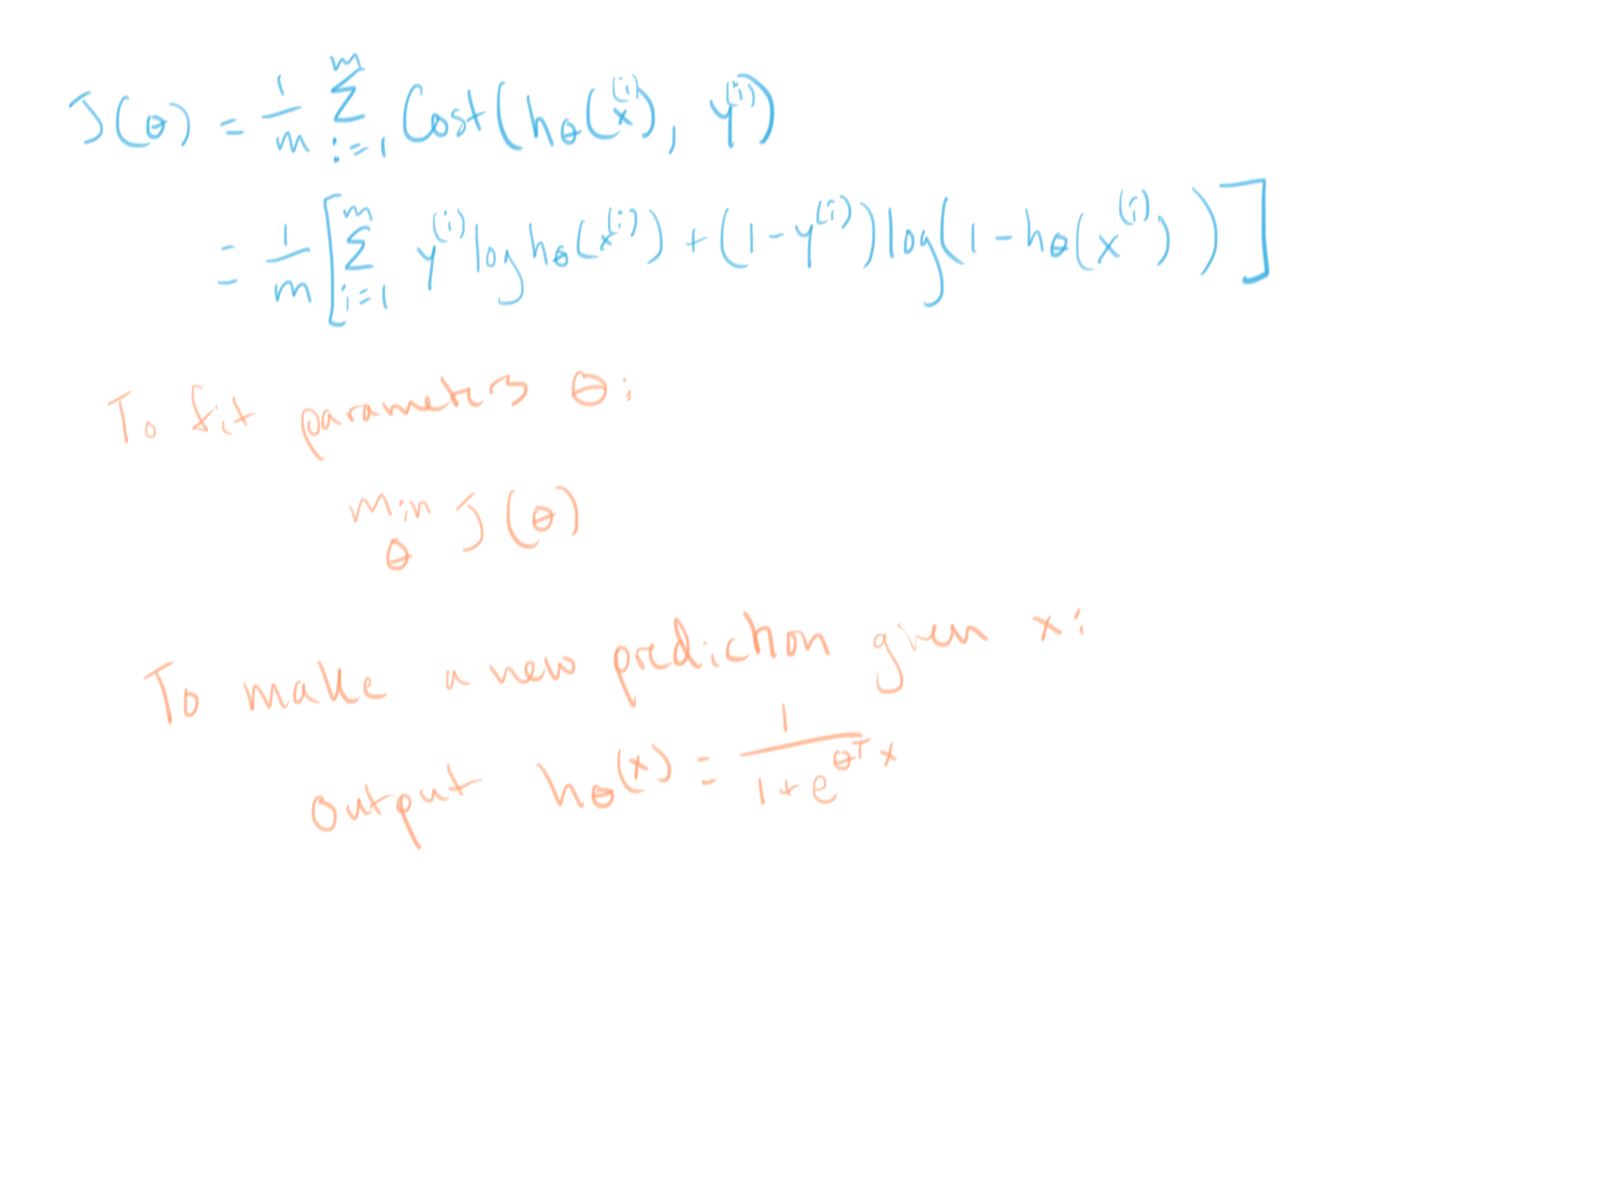 J(θ) = 1/m Σ_{i=1}^{m} Cost(h_θ(x^{(i)}), y^{(i)})
= 1/m [Σ_{i=1}^{m} y^{(i)} log h_θ(x^{(i)}) + (1 - y^{(i)}) log(1 - h_θ(x^{(i)}))]
To fit parameters θ:
min_θ J(θ)
To make a new prediction given x:
output h_θ(x) = 1/(1 + e^{θ^T x})